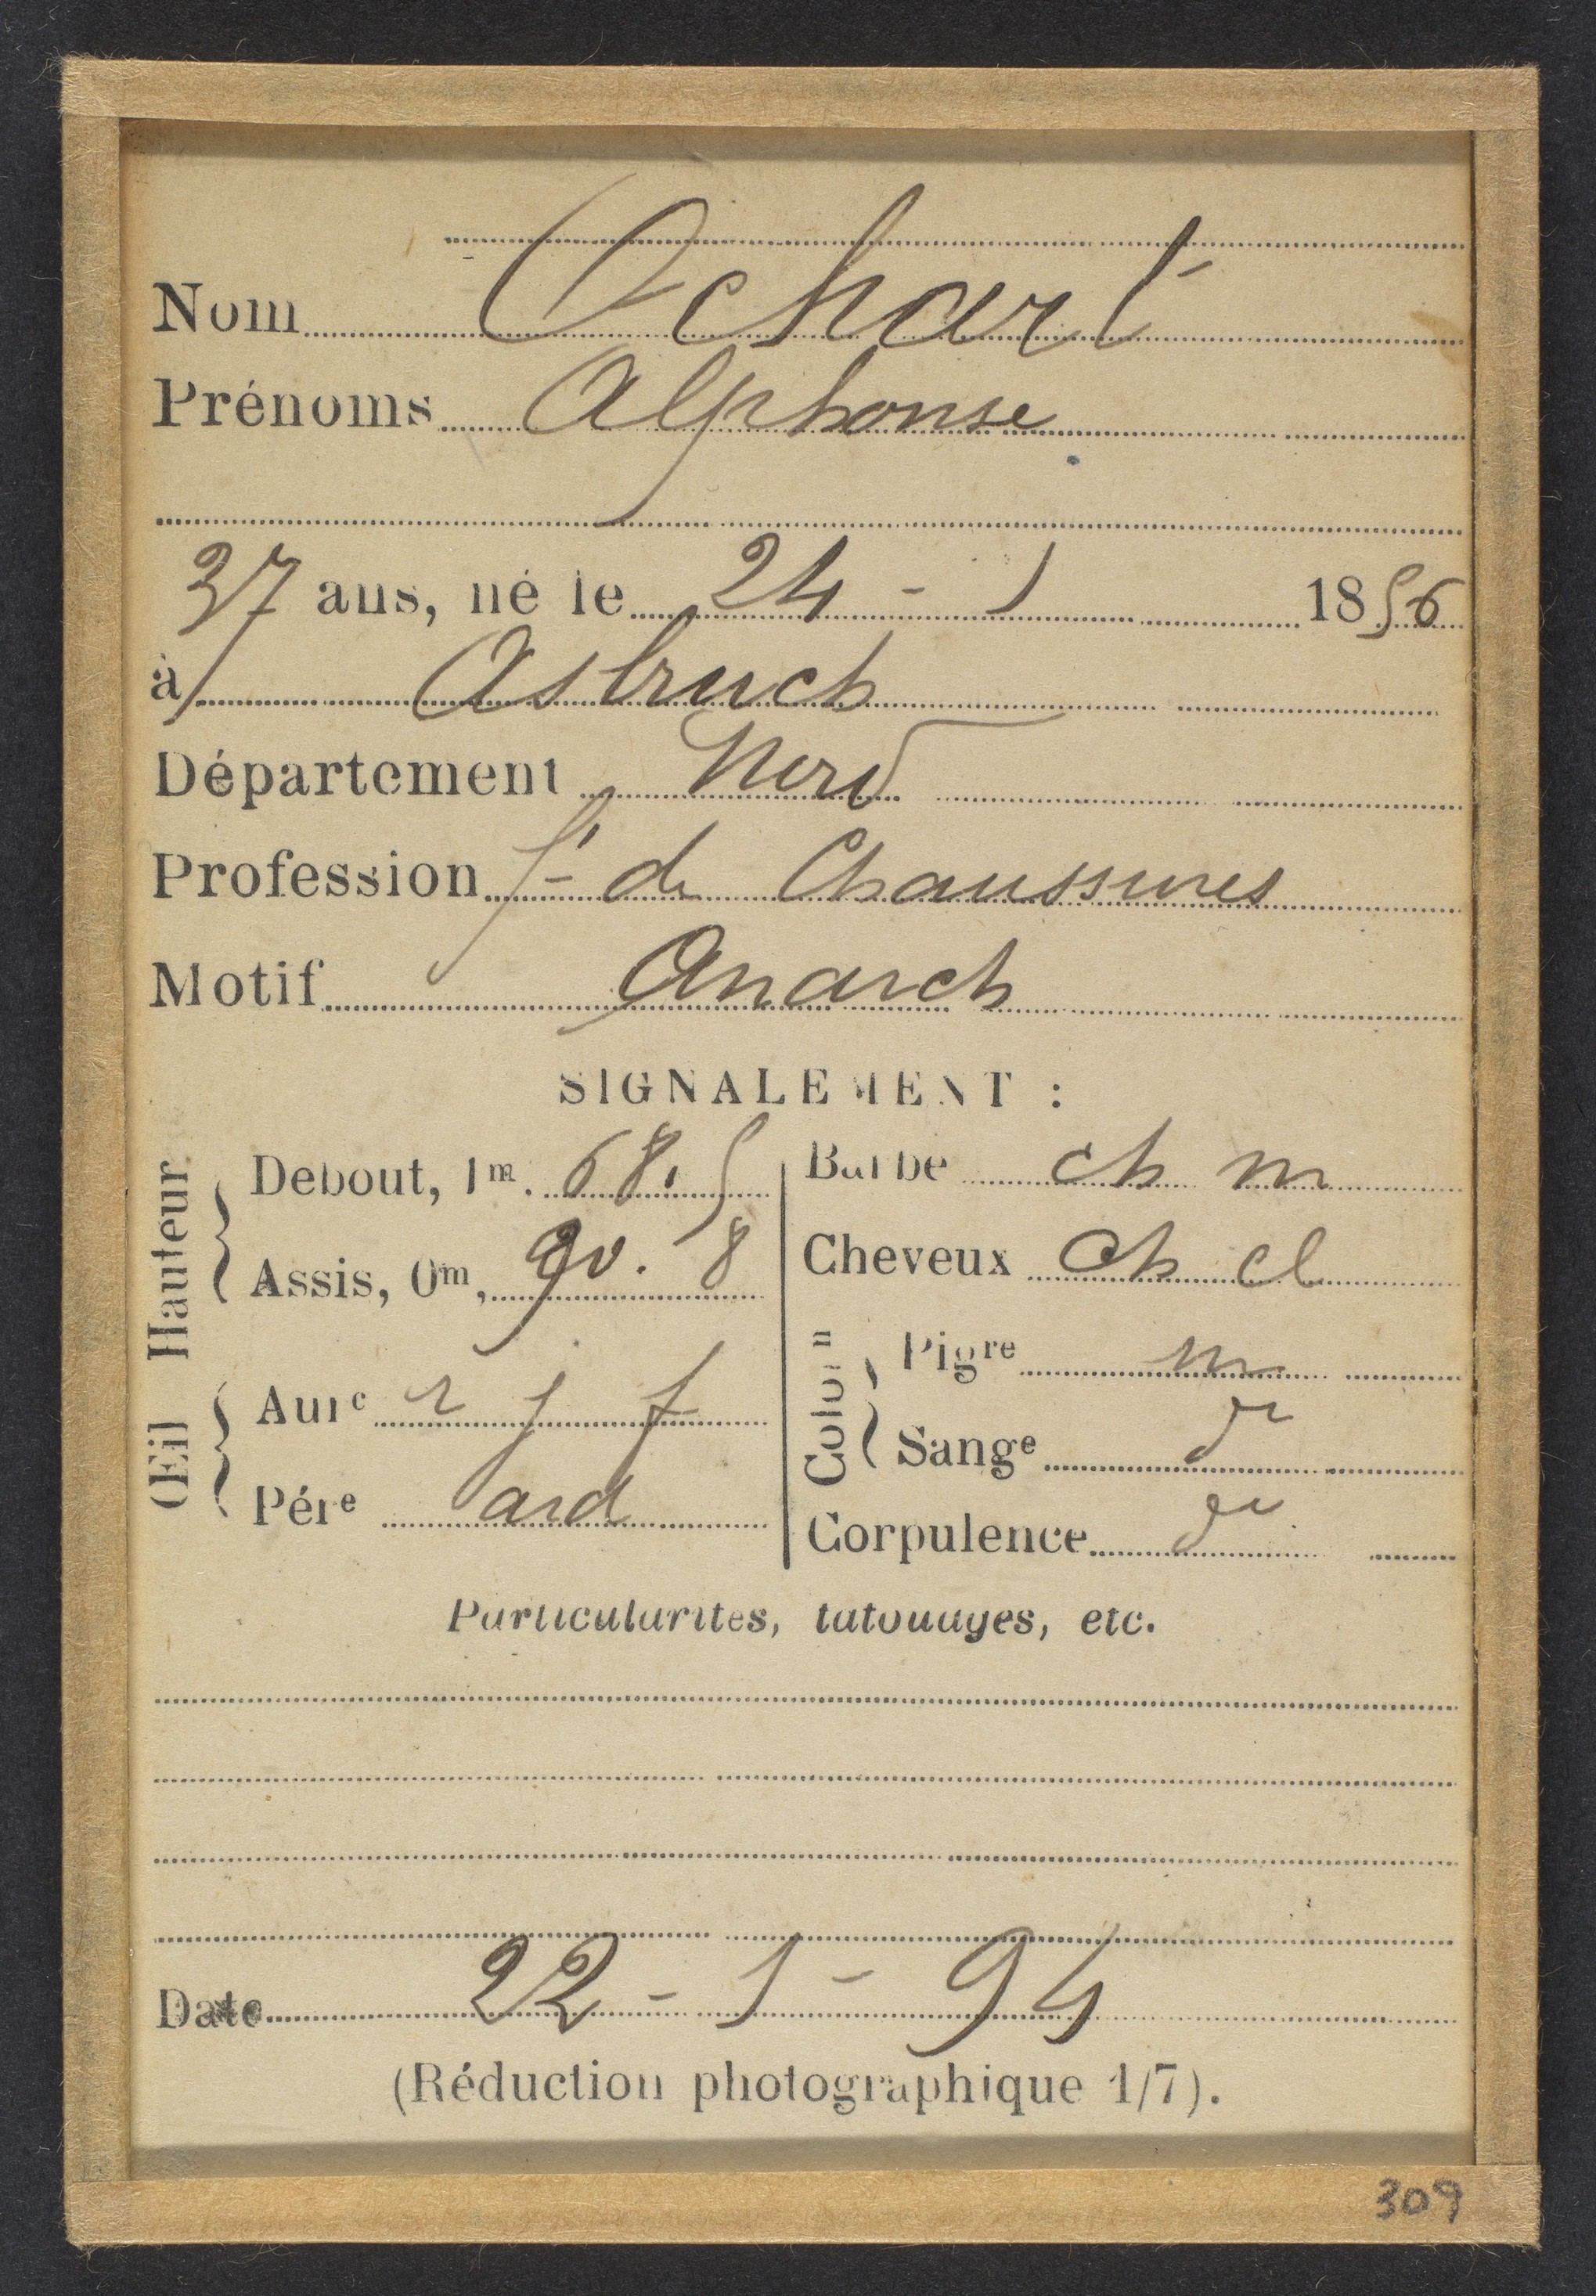 Nom Achart
Prénoms Alphonse
37 ans, né le 24 - 1 1856
à Asbruch
Département Nord
Profession ft de Chaussures
Motif Anarch
SIGNALEMENT :
Hauteur
Debout, 1m. 68.5
Assis, 0m, 90.8
Œil
Aure r j f
Pére ard
Barbe ch m
Cheveux Ch cl
Colon
Pigre m
Sange do
Corpulence do
Particularités, tatouages, etc.
Date 22 - 1 - 94
(Réduction photographique 1/7).
309